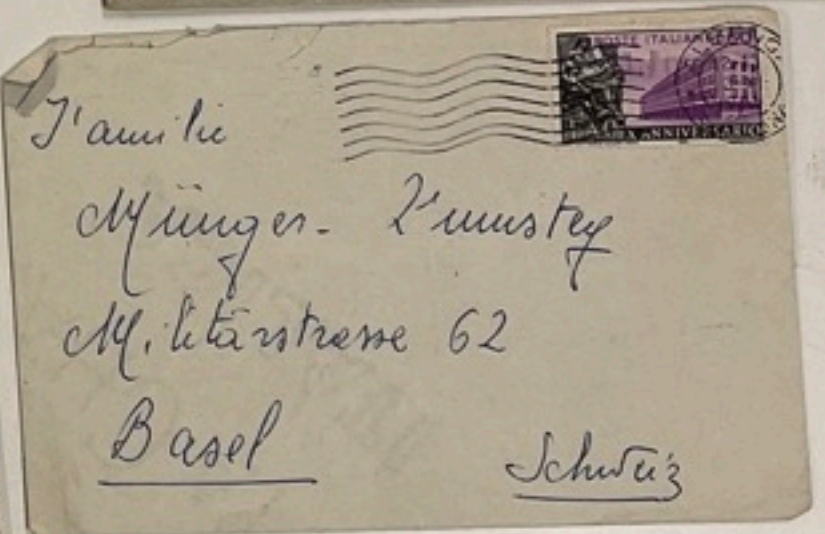 POSTE ITALIANE
X ANNIVERSARIO
Familie
Münger- Zumsteg
Militärstrasse 62
Basel
Schweiz